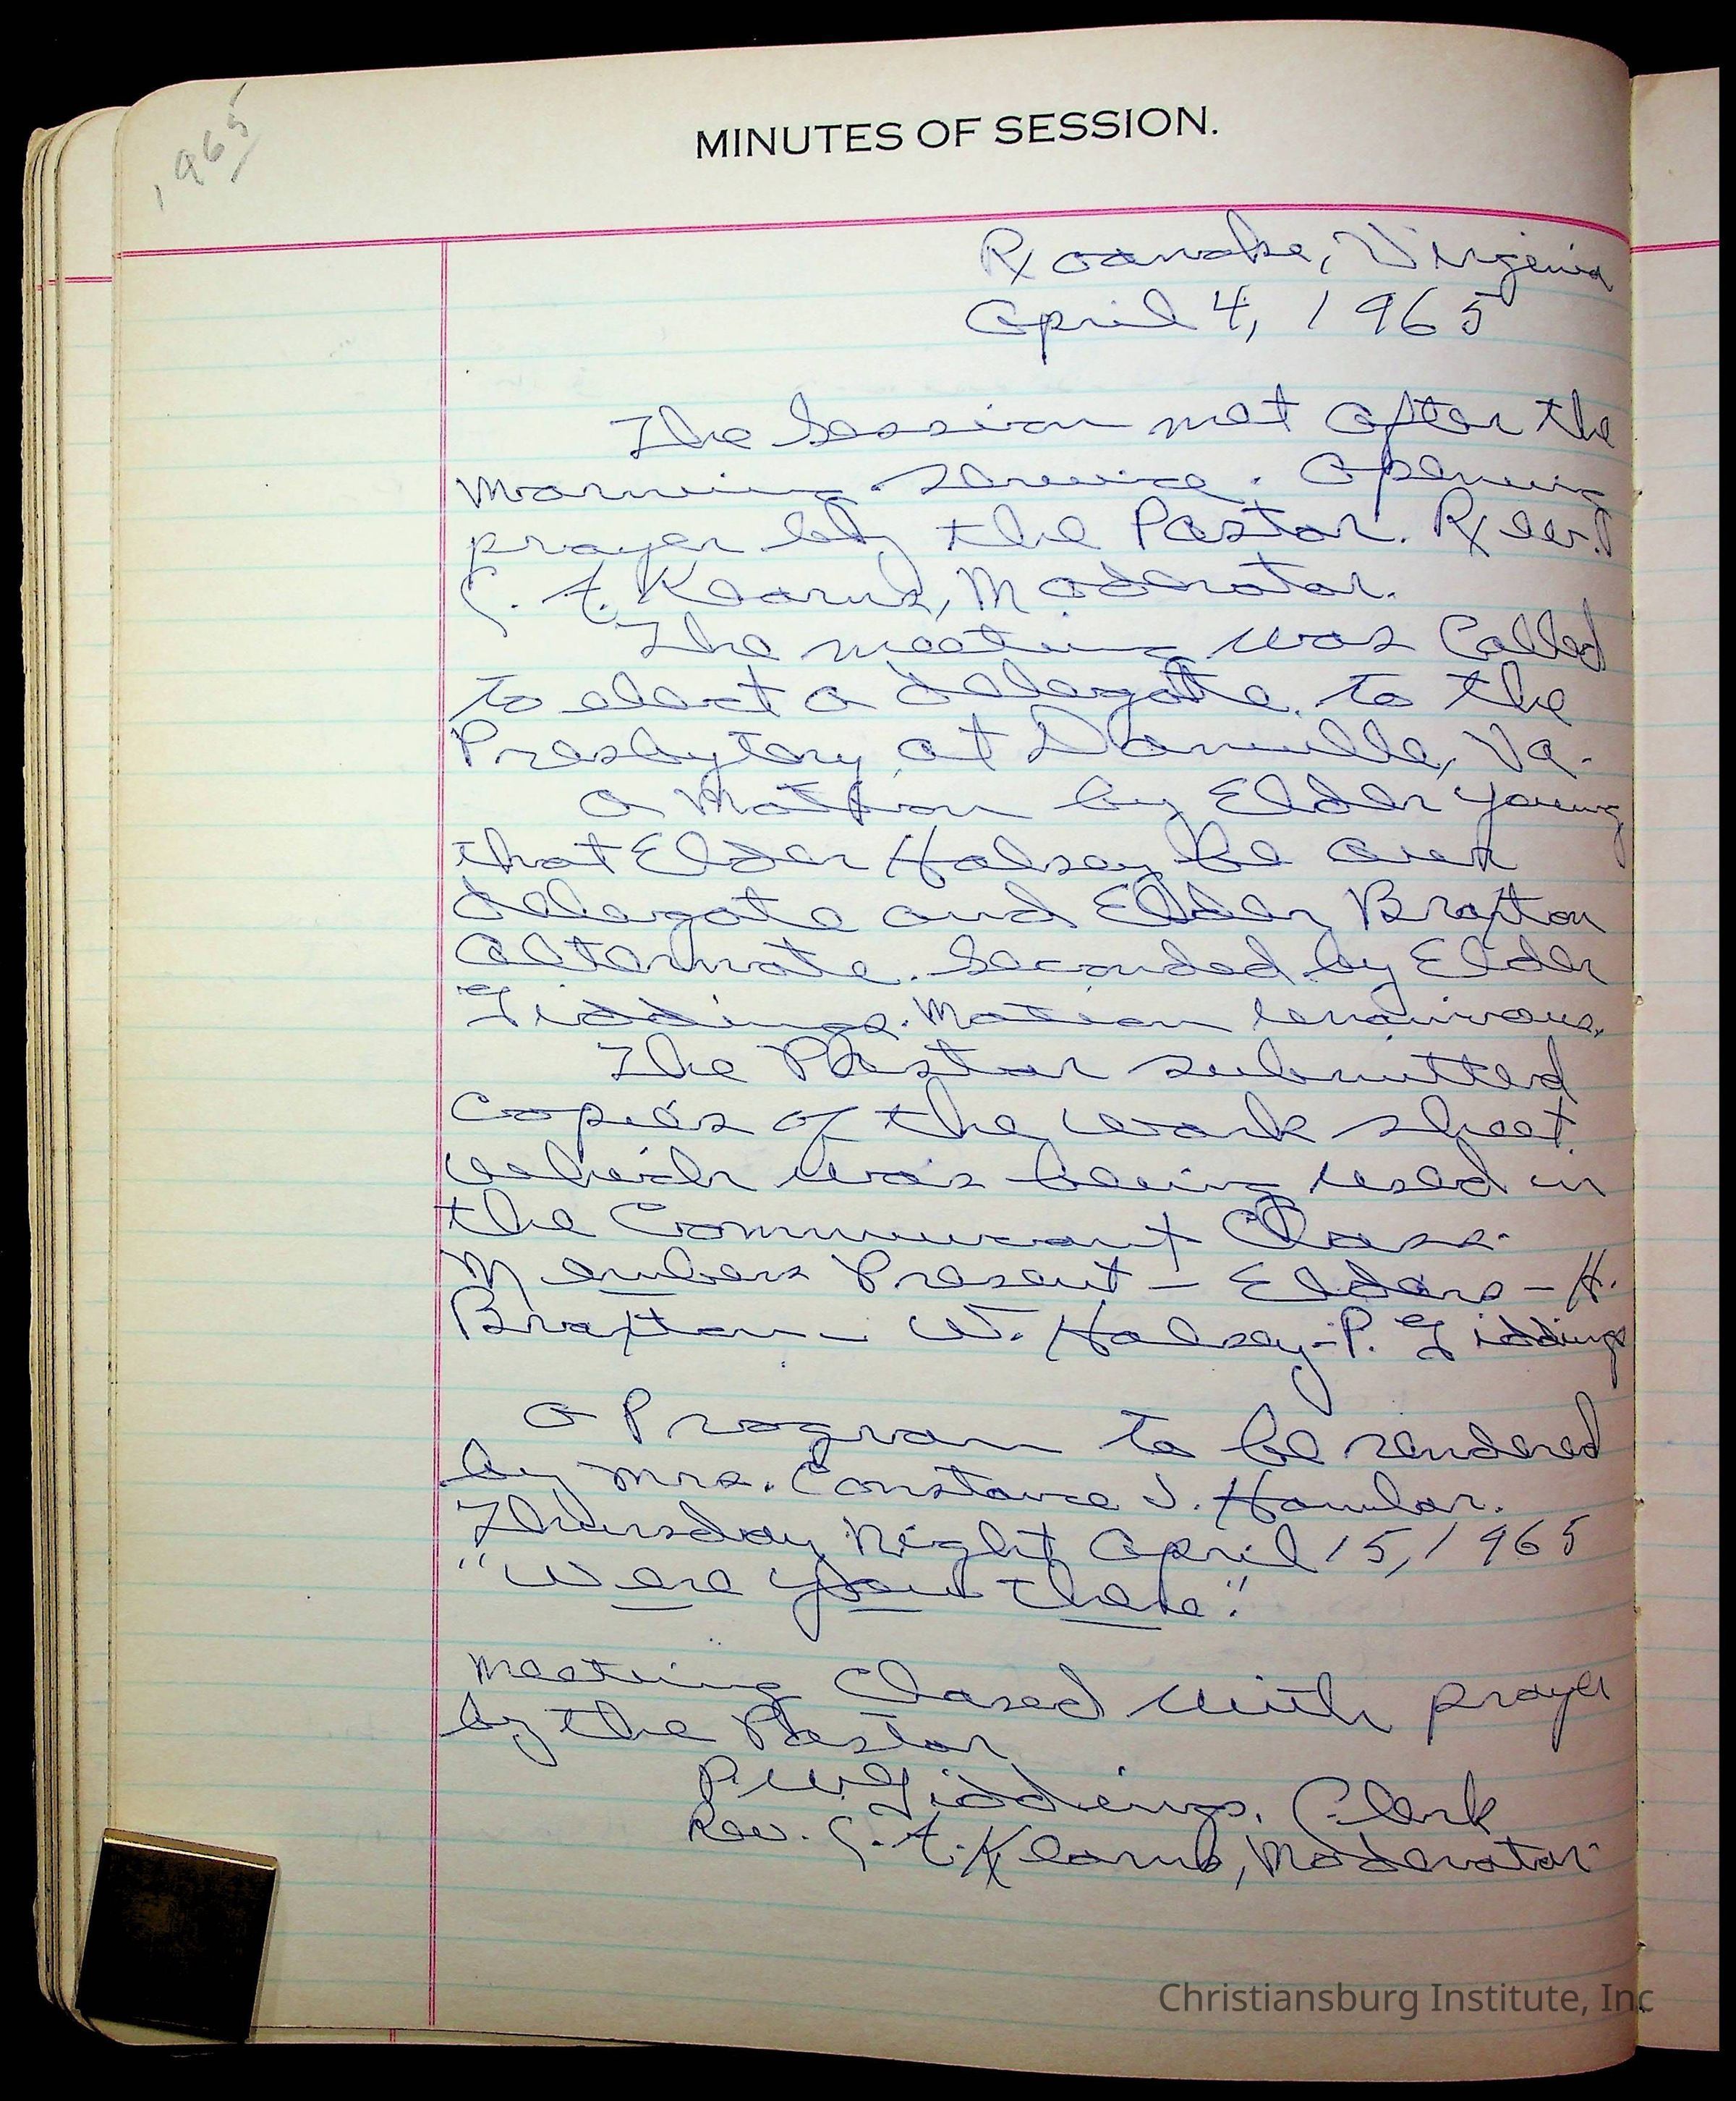 1965
MINUTES OF SESSION.
Roanoke, Virginia
April 4, 1965
The Session met after the
morning service. Opening
prayer by the Pastor. Rev.
C. A. Kearns, Moderator.
The meeting was Called
to elect a delegate. to the
Presbytery at Danville, Va.
a Motion by Elder Young
that Elder Halsey be our
delegate and Elder Braxton
alternate. Seconded by Elder
Giddings. Motion
The Pastor submitted
copies of the work sheet
which was being used in
the Communicant Class.
Members Present - Elders - H.
Braxton - W. Halsey - P. Giddings
a Program to be rendered
by Mrs. Constance J. Hamlar.
Thursday Night April 15, 1965
"Were you there."
Meeting Closed with prayer
by the Pastor
P. W. Giddings, Clerk
Rev. C. A. Kearns, Moderator
Christiansburg Institute, Inc